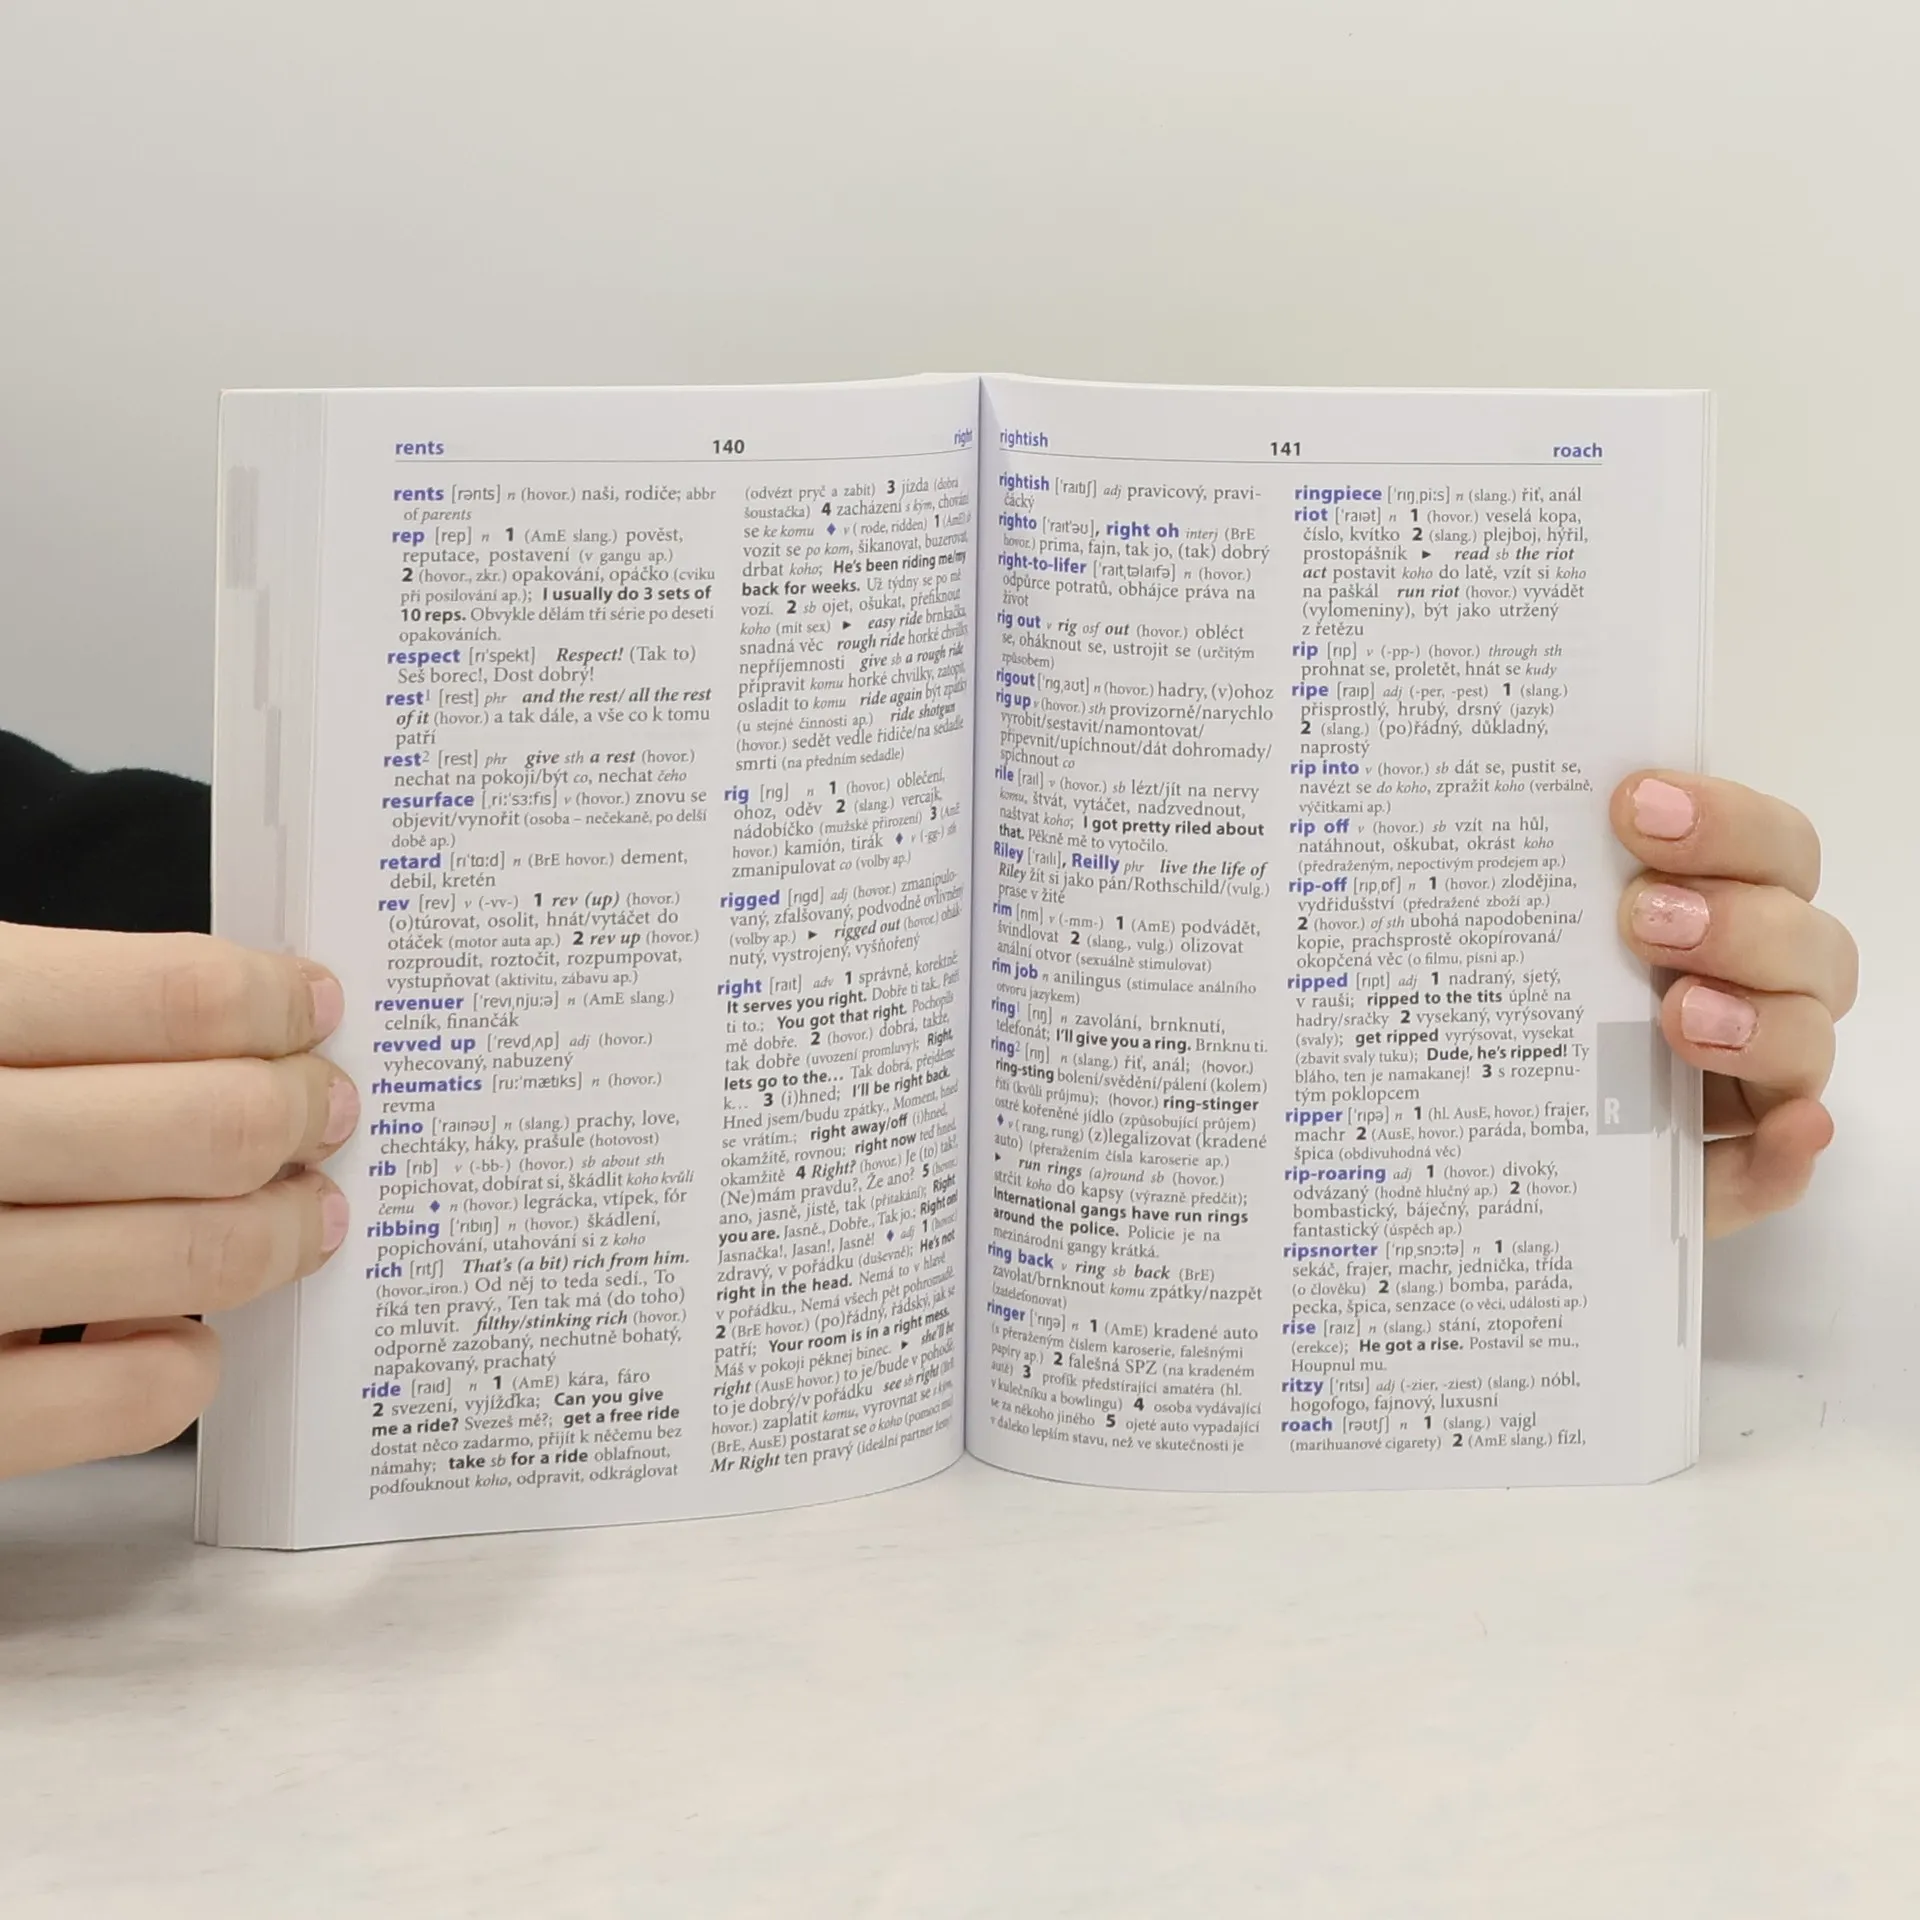 rents 140 right
rents [rənts] n (hovor.) naši, rodiče; abbr
of parents
rep [rep] n 1 (AmE slang.) pověst,
reputace, postavení (v gangu ap.)
2 (hovor., zkr.) opakování, opáčko (cviku
při posilování ap.); I usually do 3 sets of
10 reps. Obvykle dělám tři série po deseti
opakováních.
respect [rɪ'spekt] Respect! (Tak to)
Seš borec!, Dost dobrý!
rest¹ [rest] phr and the rest/ all the rest
of it (hovor.) a tak dále, a vše co k tomu
patří
rest² [rest] phr give sth a rest (hovor.)
nechat na pokoji/být co, nechat čeho
resurface [ˌriːˈsɜːfɪs] v (hovor.) znovu se
objevit/vynořit (osoba – nečekaně, po delší
době ap.)
retard [rɪ'tɑːd] n (BrE hovor.) dement,
debil, kretén
rev [rev] v (-vv-) 1 rev (up) (hovor.)
(o)túrovat, osolit, hnát/vytáčet do
otáček (motor auta ap.) 2 rev up (hovor.)
rozproudit, roztočit, rozpumpovat,
vystupňovat (aktivitu, zábavu ap.)
revenuer ['revɪˌnjuːə] n (AmE slang.)
celník, finančák
revved up ['revdˌʌp] adj (hovor.)
vyhecovaný, nabuzený
rheumatics [ruː'mætɪks] n (hovor.)
revma
rhino ['raɪnəʊ] n (slang.) prachy, love,
chechtáky, háky, prašule (hotovost)
rib [rɪb] v (-bb-) (hovor.) sb about sth
popichovat, dobírat si, škádlit koho kvůli
čemu ♦ n (hovor.) legrácka, vtípek, fór
ribbing ['rɪbɪŋ] n (hovor.) škádlení,
popichování, utahování si z koho
rich [rɪtʃ] That's (a bit) rich from him.
(hovor., iron.) Od něj to teda sedí., To
říká ten pravý., Ten tak má (do toho)
co mluvit. filthy/stinking rich (hovor.)
odporně zazobaný, nechutně bohatý,
napakovaný, prachatý
ride [raɪd] n 1 (AmE) kára, fáro
2 svezení, vyjížďka; Can you give
me a ride? Svezeš mě?; get a free ride
dostat něco zadarmo, přijít k něčemu bez
námahy; take sb for a ride oblafnout,
podfouknout koho, odpravit, odkráglovat
(odvézt pryč a zabít) 3 jízda (dobrá
šoustačka) 4 zacházení s kým, chování
se ke komu ♦ v ( rode, ridden) 1 (AmE) sb
vozit se po kom, šikanovat, buzerovat,
drbat koho; He's been riding me/my
back for weeks. Už týdny se po mě
vozí. 2 sb ojet, ošukat, přefiknout
koho (mít sex) ► easy ride brnkačka,
snadná věc rough ride horké chvilky,
nepříjemnosti give sb a rough ride
připravit komu horké chvilky, zatopit,
osladit to komu ride again být zpátky
(u stejné činnosti ap.) ride shotgun
(hovor.) sedět vedle řidiče/na sedadle
smrti (na předním sedadle)
rig [rɪg] n 1 (hovor.) oblečení,
ohoz, oděv 2 (slang.) vercajk,
nádobíčko (mužské přirození) 3 (AmE
hovor.) kamión, tirák ♦ v (-gg-) sth
zmanipulovat co (volby ap.)
rigged [rɪgd] adj (hovor.) zmanipulo-
vaný, zfalšovaný, podvodně ovlivněný
(volby ap.) ► rigged out (hovor.) ohák-
nutý, vystrojený, vyšňořený
right [raɪt] adv 1 správně, korektně
It serves you right. Dobře ti tak. Patří
ti to.; You got that right. Pochopils
mě dobře. 2 (hovor.) dobrá, takže,
tak dobře (uvození promluvy); Right,
lets go to the... Tak dobrá, přejděme
k... 3 (i)hned; I'll be right back.
Hned jsem/budu zpátky., Moment, hned
se vrátím.; right away/off (i)hned,
okamžitě, rovnou; right now teď hned,
okamžitě 4 Right? (hovor.) Je (to) tak?,
(Ne)mám pravdu?, Že ano? 5 (hovor.)
ano, jasně, jistě, tak (přitakání); Right
you are. Jasně., Dobře., Tak jo.; Right on!
Jasnačka!, Jasan!, Jasně! ♦ adj 1 (hovor.)
zdravý, v pořádku (duševně); He's not
right in the head. Nemá to v hlavě
v pořádku., Nemá všech pět pohromadě.
2 (BrE hovor.) (po)řádný, řádský, jak se
patří; Your room is in a right mess.
Máš v pokoji pěknej binec. ► she'll be
right (AusE hovor.) to je/bude v pohodě,
to je dobrý/v pořádku see sb right (BrE
hovor.) zaplatit komu, vyrovnat se s kým,
(BrE, AusE) postarat se o koho (pomoci mu)
Mr Right ten pravý (ideální partner ženy)
rightish 141 roach
rightish ['raɪtɪʃ] adj pravicový, pravi-
čácký
righto ['raɪt'əʊ], right oh interj (BrE
hovor.) prima, fajn, tak jo, (tak) dobrý
right-to-lifer ['raɪtˌtəlaɪfə] n (hovor.)
odpůrce potratů, obhájce práva na
život
rig out v rig osf out (hovor.) obléct
se, oháknout se, ustrojit se (určitým
způsobem)
rigout ['rɪgˌaʊt] n (hovor.) hadry, (v)ohoz
rig up v (hovor.) sth provizorně/narychlo
vyrobit/sestavit/namontovat/
připevnit/upíchnout/dát dohromady/
spíchnout co
rile [raɪl] v (hovor.) sb lézt/jít na nervy
komu, štvát, vytáčet, nadzvednout,
naštvat koho; I got pretty riled about
that. Pěkně mě to vytočilo.
Riley ['raɪlɪ], Reilly phr live the life of
Riley žít si jako pán/Rothschild/(vulg.)
prase v žitě
rim [rɪm] v (-mm-) 1 (AmE) podvádět,
švindlovat 2 (slang., vulg.) olizovat
anální otvor (sexuálně stimulovat)
rim job n anilingus (stimulace análního
otvoru jazykem)
ring¹ [rɪŋ] n zavolání, brnknutí,
telefonát; I'll give you a ring. Brnknu ti.
ring² [rɪŋ] n (slang.) řiť, anál; (hovor.)
ring-sting bolení/svědění/pálení (kolem)
řiti (kvůli průjmu); (hovor.) ring-stinger
ostré kořeněné jídlo (způsobující průjem)
♦ v ( rang, rung) (z)legalizovat (kradené
auto) (přeražením čísla karoserie ap.)
► run rings (a)round sb (hovor.)
strčit koho do kapsy (výrazně předčit);
International gangs have run rings
around the police. Policie je na
mezinárodní gangy krátká.
ring back v ring sb back (BrE)
zavolat/brnknout komu zpátky/nazpět
(zatelefonovat)
ringer ['rɪŋə] n 1 (AmE) kradené auto
(s přeraženým číslem karoserie, falešnými
papíry ap.) 2 falešná SPZ (na kradeném
autě) 3 profík předstírající amatéra (hl.
v kulečníku a bowlingu) 4 osoba vydávající
se za někoho jiného 5 ojeté auto vypadající
v daleko lepším stavu, než ve skutečnosti je
ringpiece ['rɪŋˌpiːs] n (slang.) řiť, anál
riot ['raɪət] n 1 (hovor.) veselá kopa,
číslo, kvítko 2 (slang.) plejboj, hýřil,
prostopášník ► read sb the riot
act postavit koho do latě, vzít si koho
na paškál run riot (hovor.) vyvádět
(vylomeniny), být jako utržený
z řetězu
rip [rɪp] v (-pp-) (hovor.) through sth
prohnat se, proletět, hnát se kudy
ripe [raɪp] adj (-per, -pest) 1 (slang.)
přisprostlý, hrubý, drsný (jazyk)
2 (slang.) (po)řádný, důkladný,
naprostý
rip into v (hovor.) sb dát se, pustit se,
navézt se do koho, zpražit koho (verbálně,
výčitkami ap.)
rip off v (hovor.) sb vzít na hůl,
natáhnout, oškubat, okrást koho
(předraženým, nepoctivým prodejem ap.)
rip-off [rɪpˌɒf] n 1 (hovor.) zlodějina,
vydřidušství (předražené zboží ap.)
2 (hovor.) of sth ubohá napodobenina/
kopie, prachsprostě okopírovaná/
okopčená věc (o filmu, písni ap.)
ripped [rɪpt] adj 1 nadraný, sjetý,
v rauši; ripped to the tits úplně na
hadry/sračky 2 vysekaný, vyrýsovaný
(svaly); get ripped vyrýsovat, vysekat
(zbavit svaly tuku); Dude, he's ripped! Ty
bláho, ten je namakanej! 3 s rozepnu-
tým poklopcem
ripper ['rɪpə] n 1 (hl. AusE, hovor.) frajer,
machr 2 (AusE, hovor.) paráda, bomba,
špica (obdivuhodná věc)
rip-roaring adj 1 (hovor.) divoký,
odvázaný (hodně hlučný ap.) 2 (hovor.)
bombastický, báječný, parádní,
fantastický (úspěch ap.)
ripsnorter ['rɪpˌsnɔːtə] n 1 (slang.)
sekáč, frajer, machr, jednička, třída
(o člověku) 2 (slang.) bomba, paráda,
pecka, špica, senzace (o věci, události ap.)
rise [raɪz] n (slang.) stání, ztopoření
(erekce); He got a rise. Postavil se mu.,
Houpnul mu.
ritzy ['rɪtsɪ] adj (-zier, -ziest) (slang.) nóbl,
hogofogo, fajnový, luxusní
roach [rəʊtʃ] n 1 (slang.) vajgl
(marihuanové cigarety) 2 (AmE slang.) fízl,
R